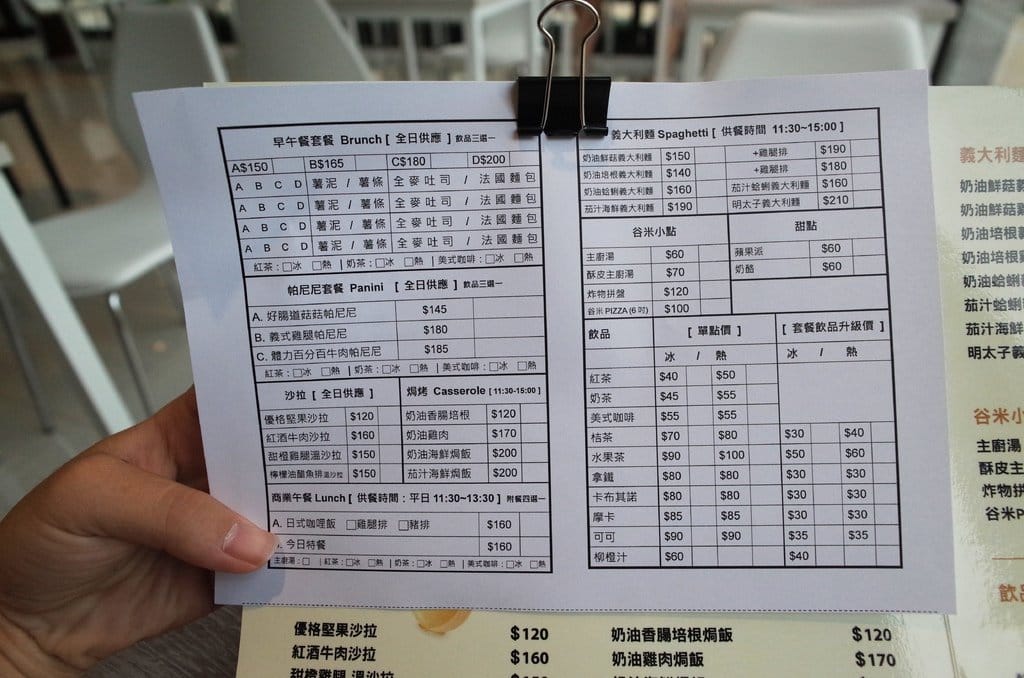 早午餐套餐 Brunch [ 全日供應 ] 飲品三選一
A$150 B$165 C$180 D$200
A B C D 薯泥 / 薯條 全麥吐司 / 法國麵包
A B C D 薯泥 / 薯條 全麥吐司 / 法國麵包
A B C D 薯泥 / 薯條 全麥吐司 / 法國麵包
A B C D 薯泥 / 薯條 全麥吐司 / 法國麵包
紅茶:□冰 □熱 | 奶茶:□冰 □熱 | 美式咖啡:□冰 □熱
帕尼尼套餐 Panini [ 全日供應 ] 飲品三選一
A. 好腸道菇菇帕尼尼 $145
B. 義式雞腿帕尼尼 $180
C. 體力百分百牛肉帕尼尼 $185
紅茶:□冰 □熱 | 奶茶:□冰 □熱 | 美式咖啡:□冰 □熱
沙拉 [ 全日供應 ]
優格堅果沙拉 $120
紅酒牛肉沙拉 $160
甜橙雞腿溫沙拉 $150
檸檬油醋魚排溫沙拉 $150
焗烤 Casserole [ 11:30-15:00 ]
奶油香腸培根 $120
奶油雞肉 $170
奶油海鮮焗飯 $200
茄汁海鮮焗飯 $200
商業午餐 Lunch [ 供餐時間:平日 11:30~13:30 ] 附餐四選一
A. 日式咖哩飯 □雞腿排 □豬排 $160
今日特餐 $160
主廚湯:□ | 紅茶:□冰 □熱 | 奶茶:□冰 □熱 | 美式咖啡:□冰 □熱
義大利麵 Spaghetti [ 供餐時間 11:30~15:00 ]
奶油鮮菇義大利麵 $150 +雞腿排 $190
奶油培根義大利麵 $140 +雞腿排 $180
奶油蛤蜊義大利麵 $160 茄汁蛤蜊義大利麵 $160
茄汁海鮮義大利麵 $190 明太子義大利麵 $210
谷米小點
主廚湯 $60
酥皮主廚湯 $70
炸物拼盤 $120
谷米 PIZZA (6吋) $100
甜點
蘋果派 $60
奶酪 $60
飲品 [ 單點價 ] [ 套餐飲品升級價 ]
冰 / 熱 冰 / 熱
紅茶 $40 $50
奶茶 $45 $55
美式咖啡 $55 $55
桔茶 $70 $80 $30 $40
水果茶 $90 $100 $50 $60
拿鐵 $80 $80 $30 $30
卡布其諾 $80 $80 $30 $30
摩卡 $85 $85 $30 $30
可可 $90 $90 $35 $35
柳橙汁 $60 $40
優格堅果沙拉 $120
紅酒牛肉沙拉 $160
奶油香腸培根焗飯 $120
奶油雞肉焗飯 $170
義大利麵
奶油鮮菇義
奶油鮮菇
奶油培根義
奶油培根
奶油蛤蜊
茄汁蛤蜊
茄汁海鮮
明太子義
谷米小
主廚湯
酥皮主
炸物拼
谷米P
飲品